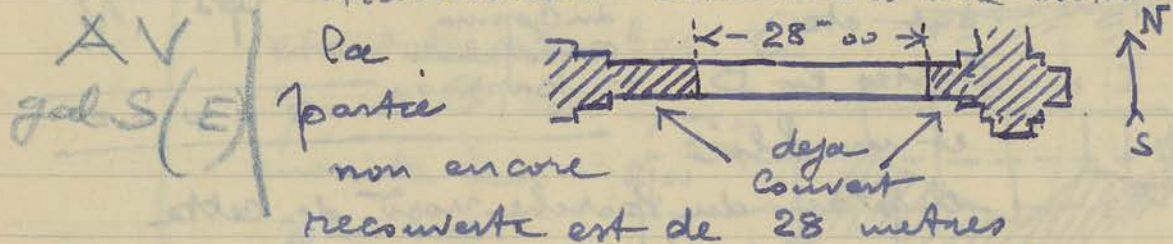 AV
gal. S(E)
la
partie
non encore
recouverte est de 28 metres
<- 28m 00 ->
deja
couvert
N
S